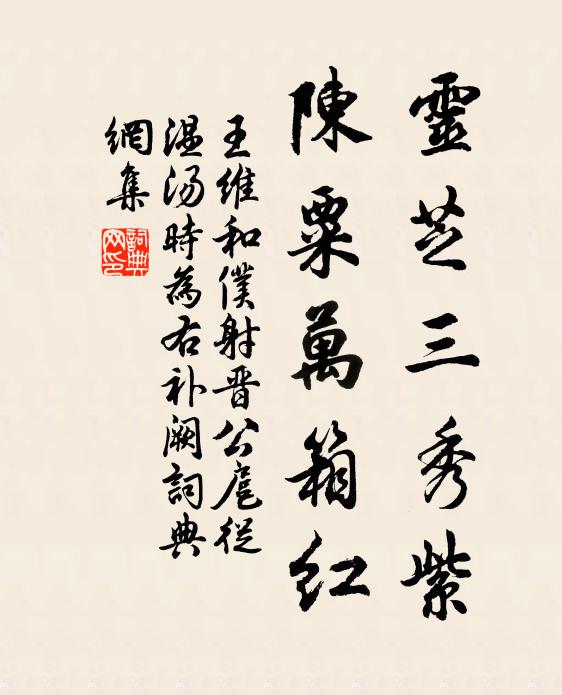 靈芝三秀紫
陳粟萬箱紅
王維和僕射晋公扈從
温湯時為右补阙詞典
網集
詞典網印